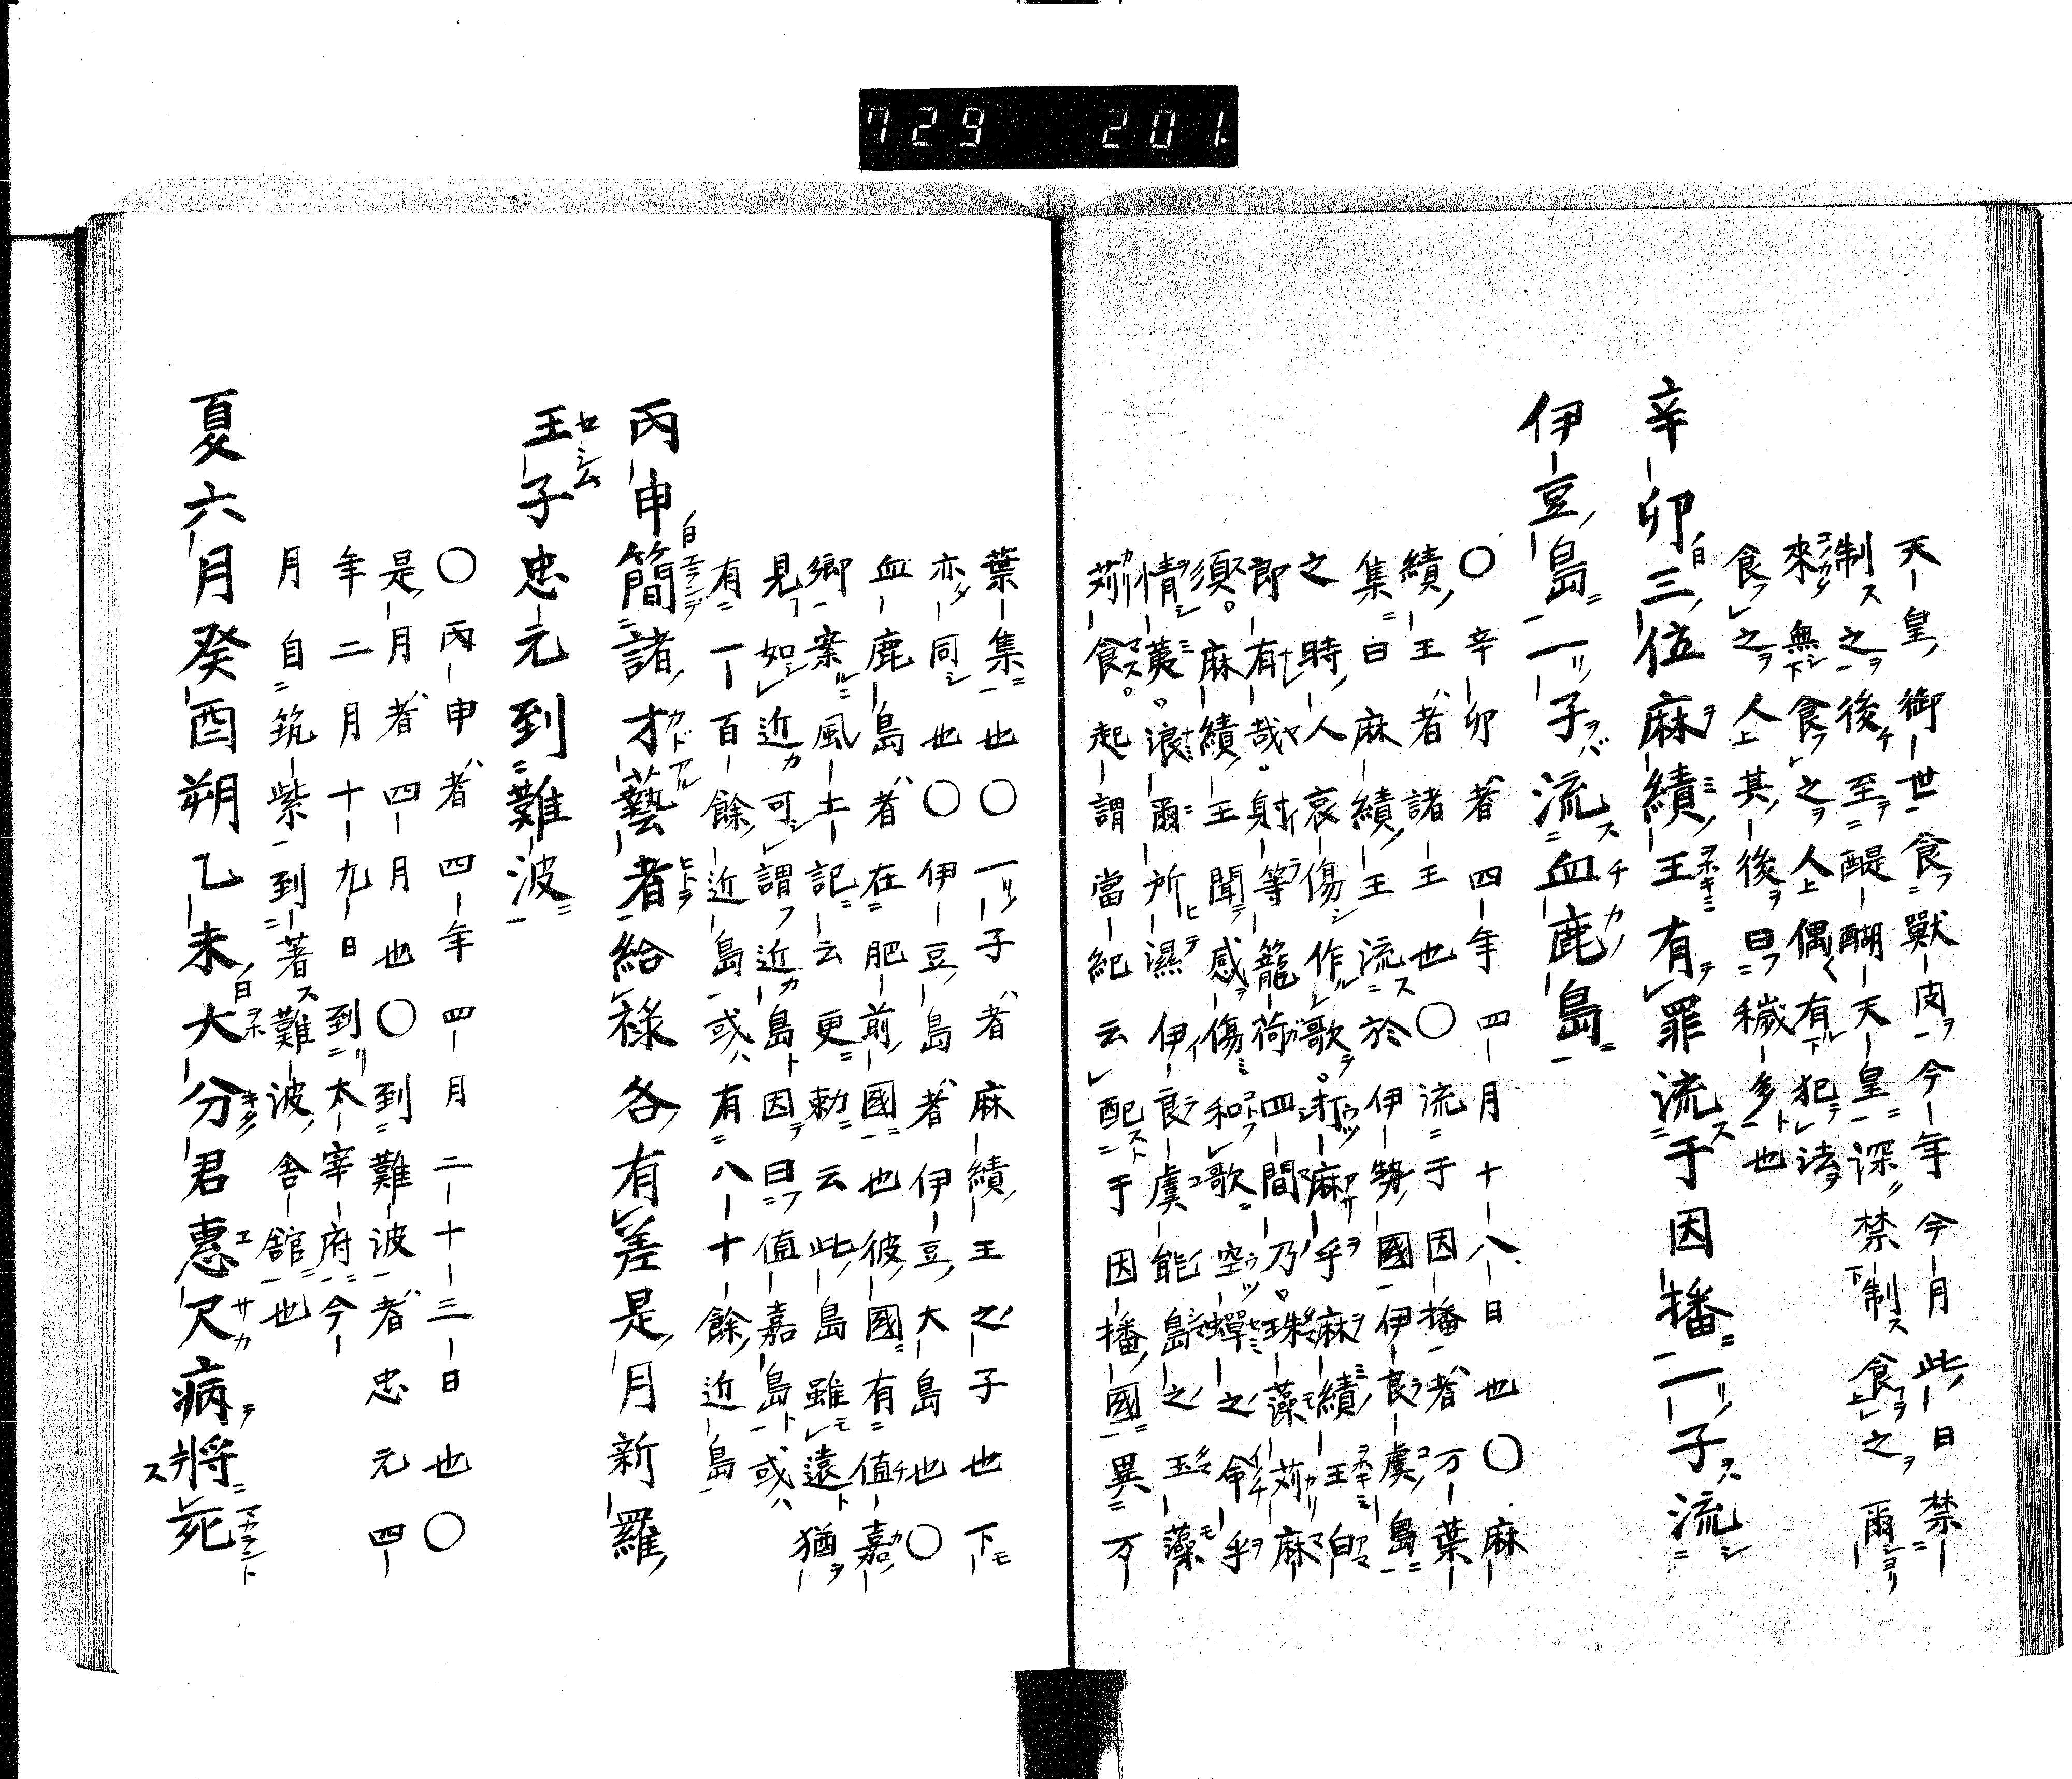 729 201.
天皇御世食獸肉今年今月此日禁
制之後至醍醐天皇深禁制食之爾
來無食之人偶有犯法
食之人其後曰穢多也
辛卯三位麻績王有罪流于因播一子流
伊豆島一子流血鹿島
○辛卯者四年四月十八日也○麻
績王者諸王也○流于因播者万葉
集曰麻績王流於伊勢國伊良虞島
之時人哀傷作歌打麻乎麻績王白
郎有哉射等籠荷四間乃珠藻苅麻
須麻績王聞感傷和歌空蟬之命乎
情美浪爾所濕伊良虞能島之玉藻
苅食起謂當紀云配于因播國異万
葉集也○一子者麻績王之子也下
亦同也○伊豆島者伊豆大島也○
血鹿島者在肥前國也彼國有值嘉
鄉案風土記云更勅云此島雖遠猶
見如近可謂近島因曰值嘉島或
有一百餘近島或有八十餘近島
丙申簡諸才藝者給祿各有差是月新羅
王子忠元到難波
○丙申者四年四月二十三日也○
是月者四月也○到難波者忠元四
年二月十九日到太宰府今
月自筑紫到著難波舍館也
夏六月癸酉朔乙未大分君惠尺病將死